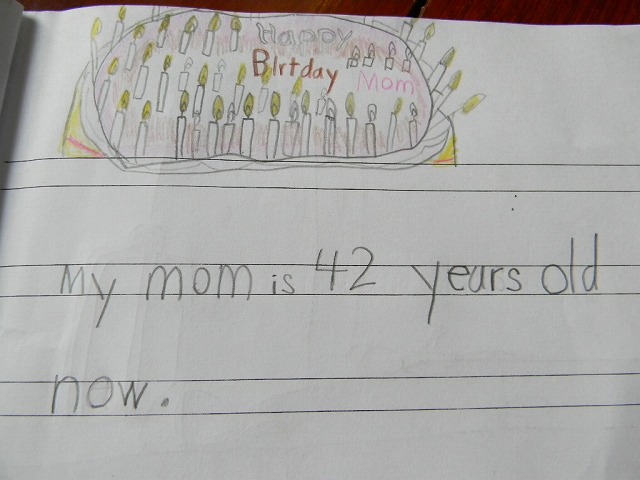 Happy
Birtday
Mom
My mom is 42 years old
now.